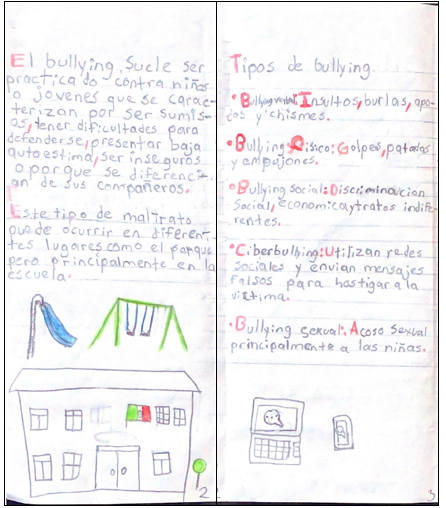 El bullying. Suele ser
practicado contra niños
o jovenes que se carac-
terizan por ser sumis-
os, tener dificultades para
defenderse, presentar baja
autoestima, ser inseguros
o porque se diferenci-
an de sus compañeros.
Este tipo de maltrato
puede ocurrir en diferen-
tes lugares como el parque
pero principalmente en la
escuela.
2
Tipos de bullying
•Bullying verbal: Insultos, burlas, apo-
dos y chismes.
•Bullying Físico: Golpes, patadas
y empujones.
•Bullying social: Discriminacion
social, economica y tratos indife-
rentes.
•Ciberbullying: Utilizan redes
sociales y envian mensajes
falsos para hostigar a la
victima.
•Bullying sexual: Acoso sexual
principalmente a las niñas.
3